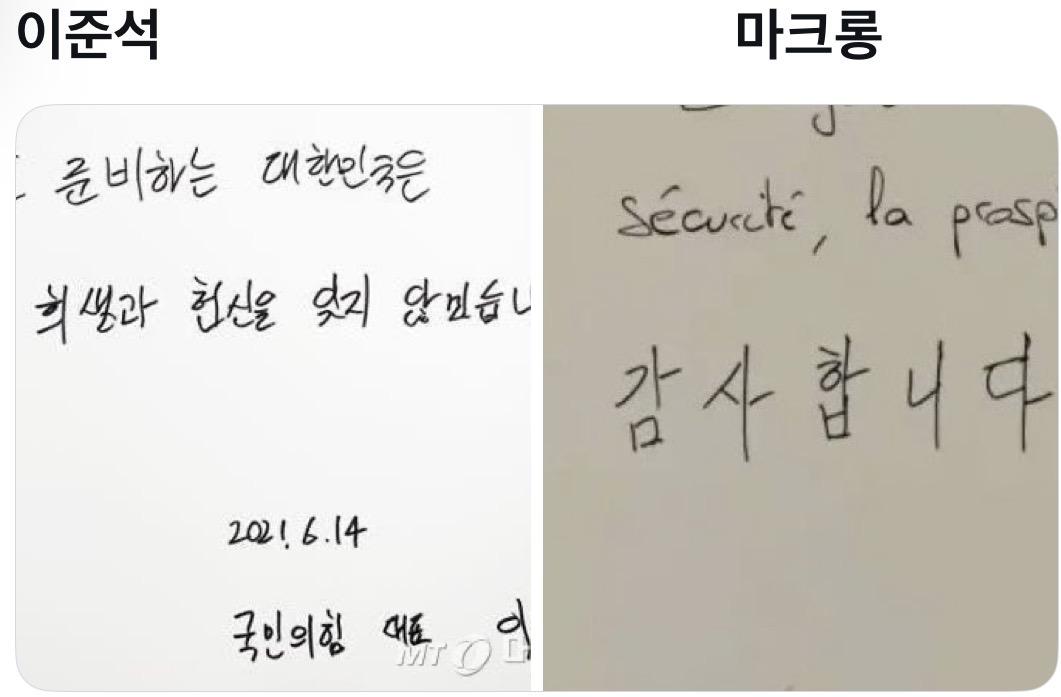 이준석
마크롱
준비하는 대한민국은
희생과 헌신을 잊지 않겠습니
2021. 6. 14
국인의힘 대표 이
sécurité, la prosp
감사합니다
MT